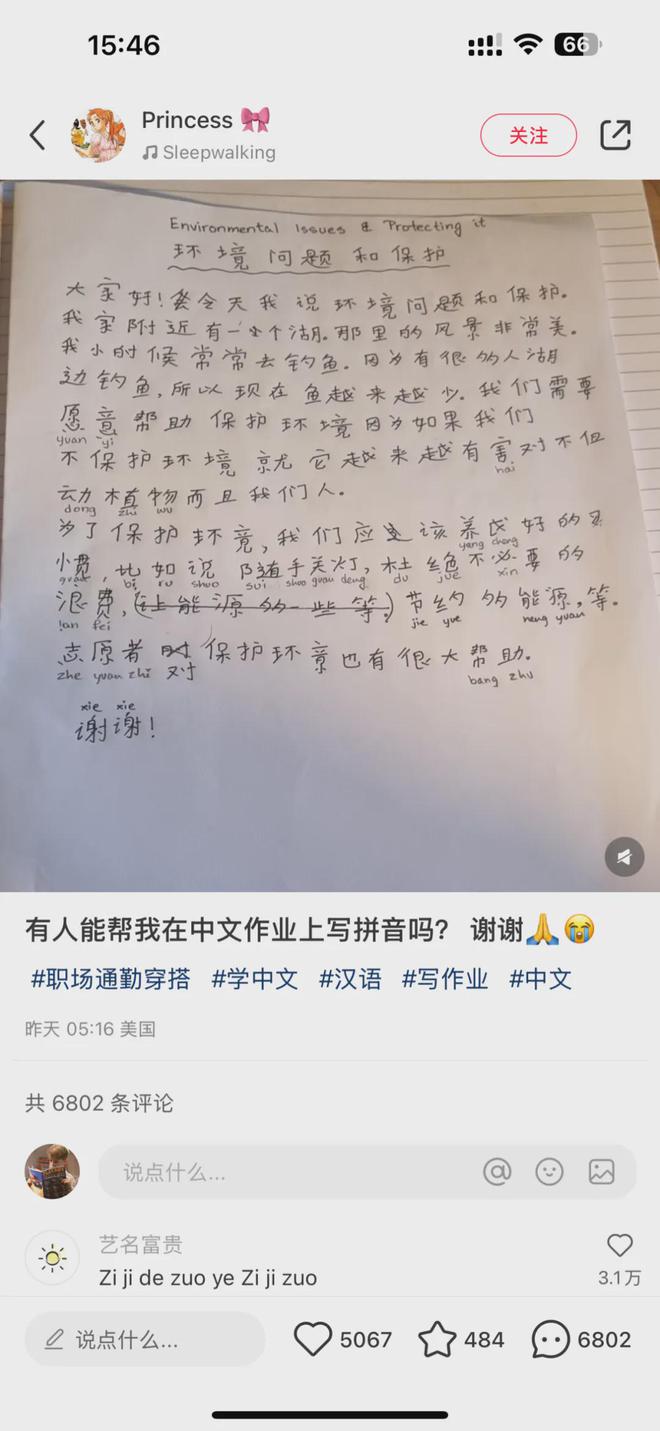 15:46
66
Princess 🎀
Sleepwalking
关注
Environmental Issues & Protecting it
环境问题和保护
大家好！今天我说环境问题和保护。
我家附近有一个湖。那里的风景非常美。
我小时候常常去钓鱼。因为有很多人湖
边钓鱼，所以现在鱼越来越少。我们需要
愿意帮助保护环境因为如果我们
yuan yi
不保护环境就它越来越有害对不但
hai
动植物而且我们人。
dong zhi wu
为了保护环境，我们应该养成好的习
yang cheng
惯，比如说随手关灯，杜绝不必要的
guan bi ru shuo sui shou guan deng du jue xin
浪费，(让能源的一些等。)节约的能源，等。
lan fei jie yue neng yuan
志愿者对保护环境也有很大帮助。
zhe yuan zhi 对 bang zhu
xie xie
谢谢！
有人能帮我在中文作业上写拼音吗？ 谢谢🙏😭
#职场通勤穿搭 #学中文 #汉语 #写作业 #中文
昨天 05:16 美国
共 6802 条评论
说点什么...
艺名富贵
Zi ji de zuo ye Zi ji zuo
3.1万
说点什么...
5067
484
6802